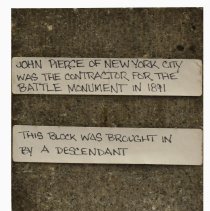 JOHN PIERCE OF NEW YORK CITY
WAS THE CONTRACTOR FOR THE
BATTLE MONUMENT IN 1891
THIS BLOCK WAS BROUGHT IN
BY A DESCENDANT